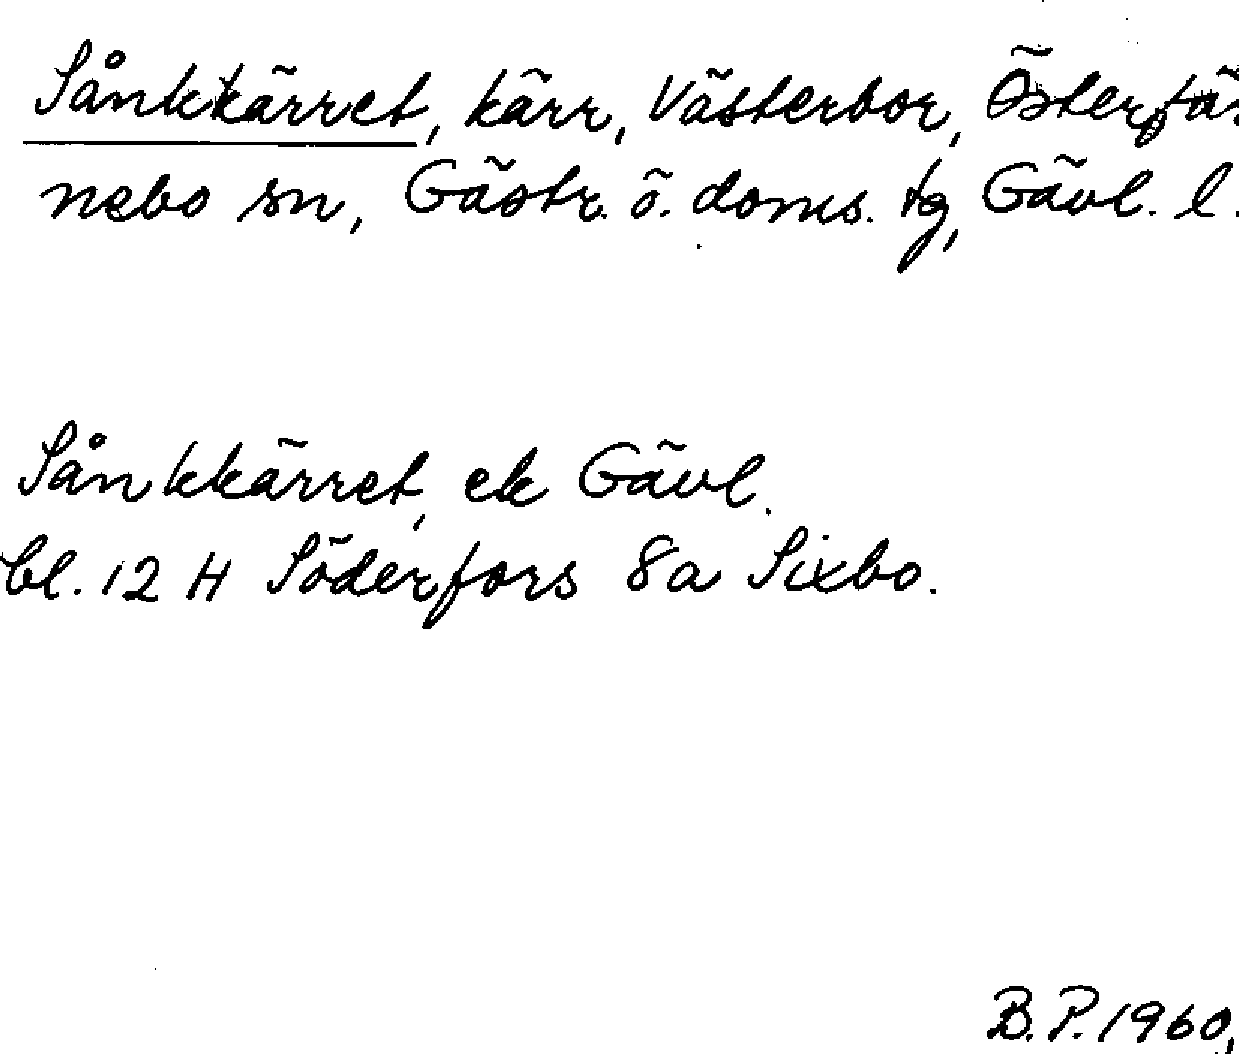 Sånkkärret, kärr, Västerbor, Österfär
nebo sn, Gästr. ö. doms. tg, Gävl. l.
Sånkkärret, ek Gävl.
bl. 12 H Söderfors 8a Sixbo.
B.P. 1960,